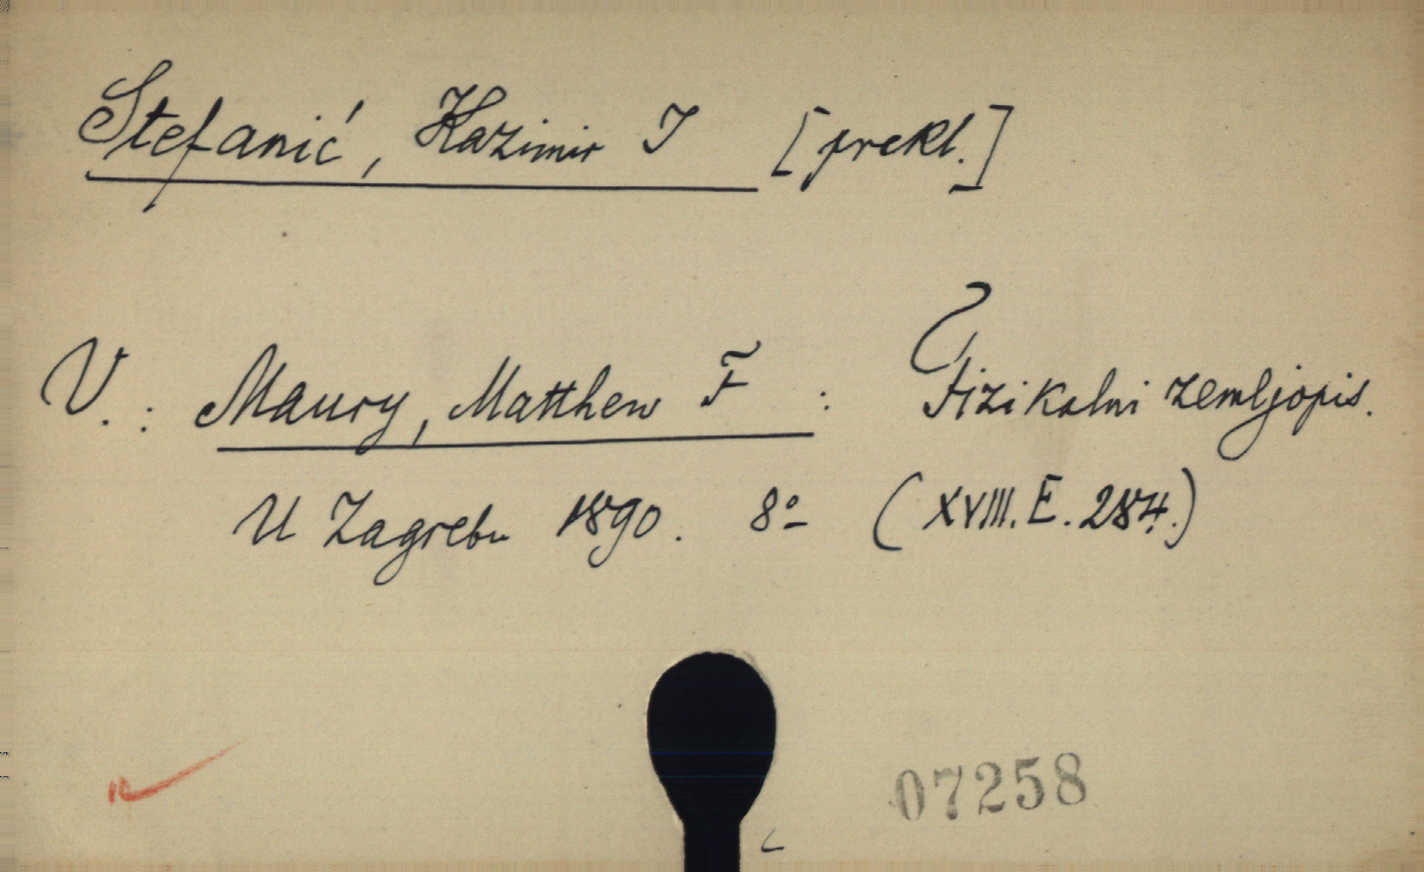 Stefanić, Kazimir J [prekl.]
V.: Maury, Matthew F : Fizikalni zemljopis.
U Zagrebu 1890. 8º (XVIII. E. 284.)
07258